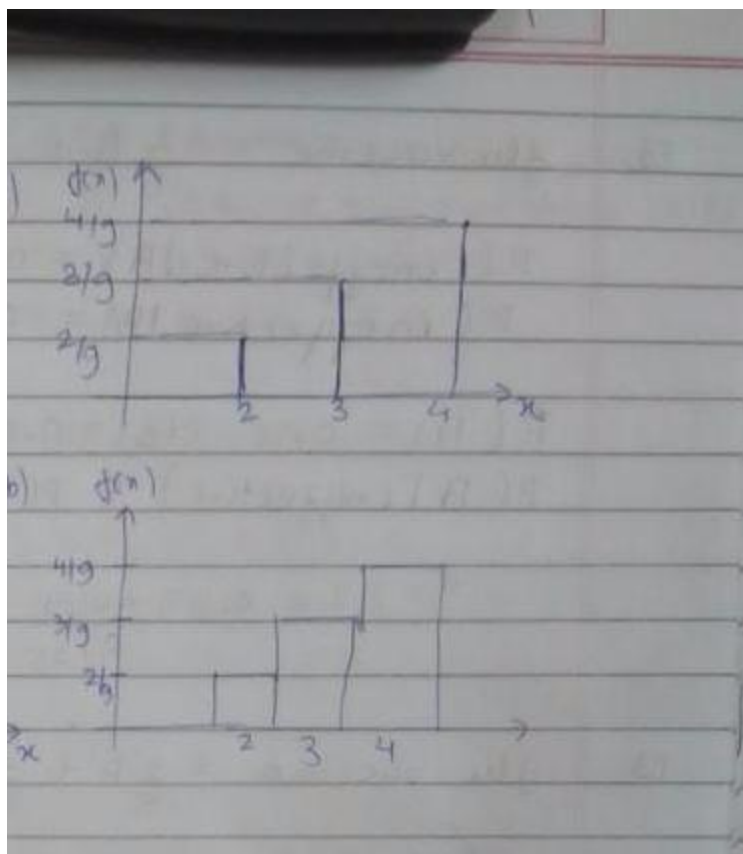 )
f(x)
4/9
3/9
2/9
2 3 4 x
b) f(x)
4/9
3/9
2/9
2 3 4
x